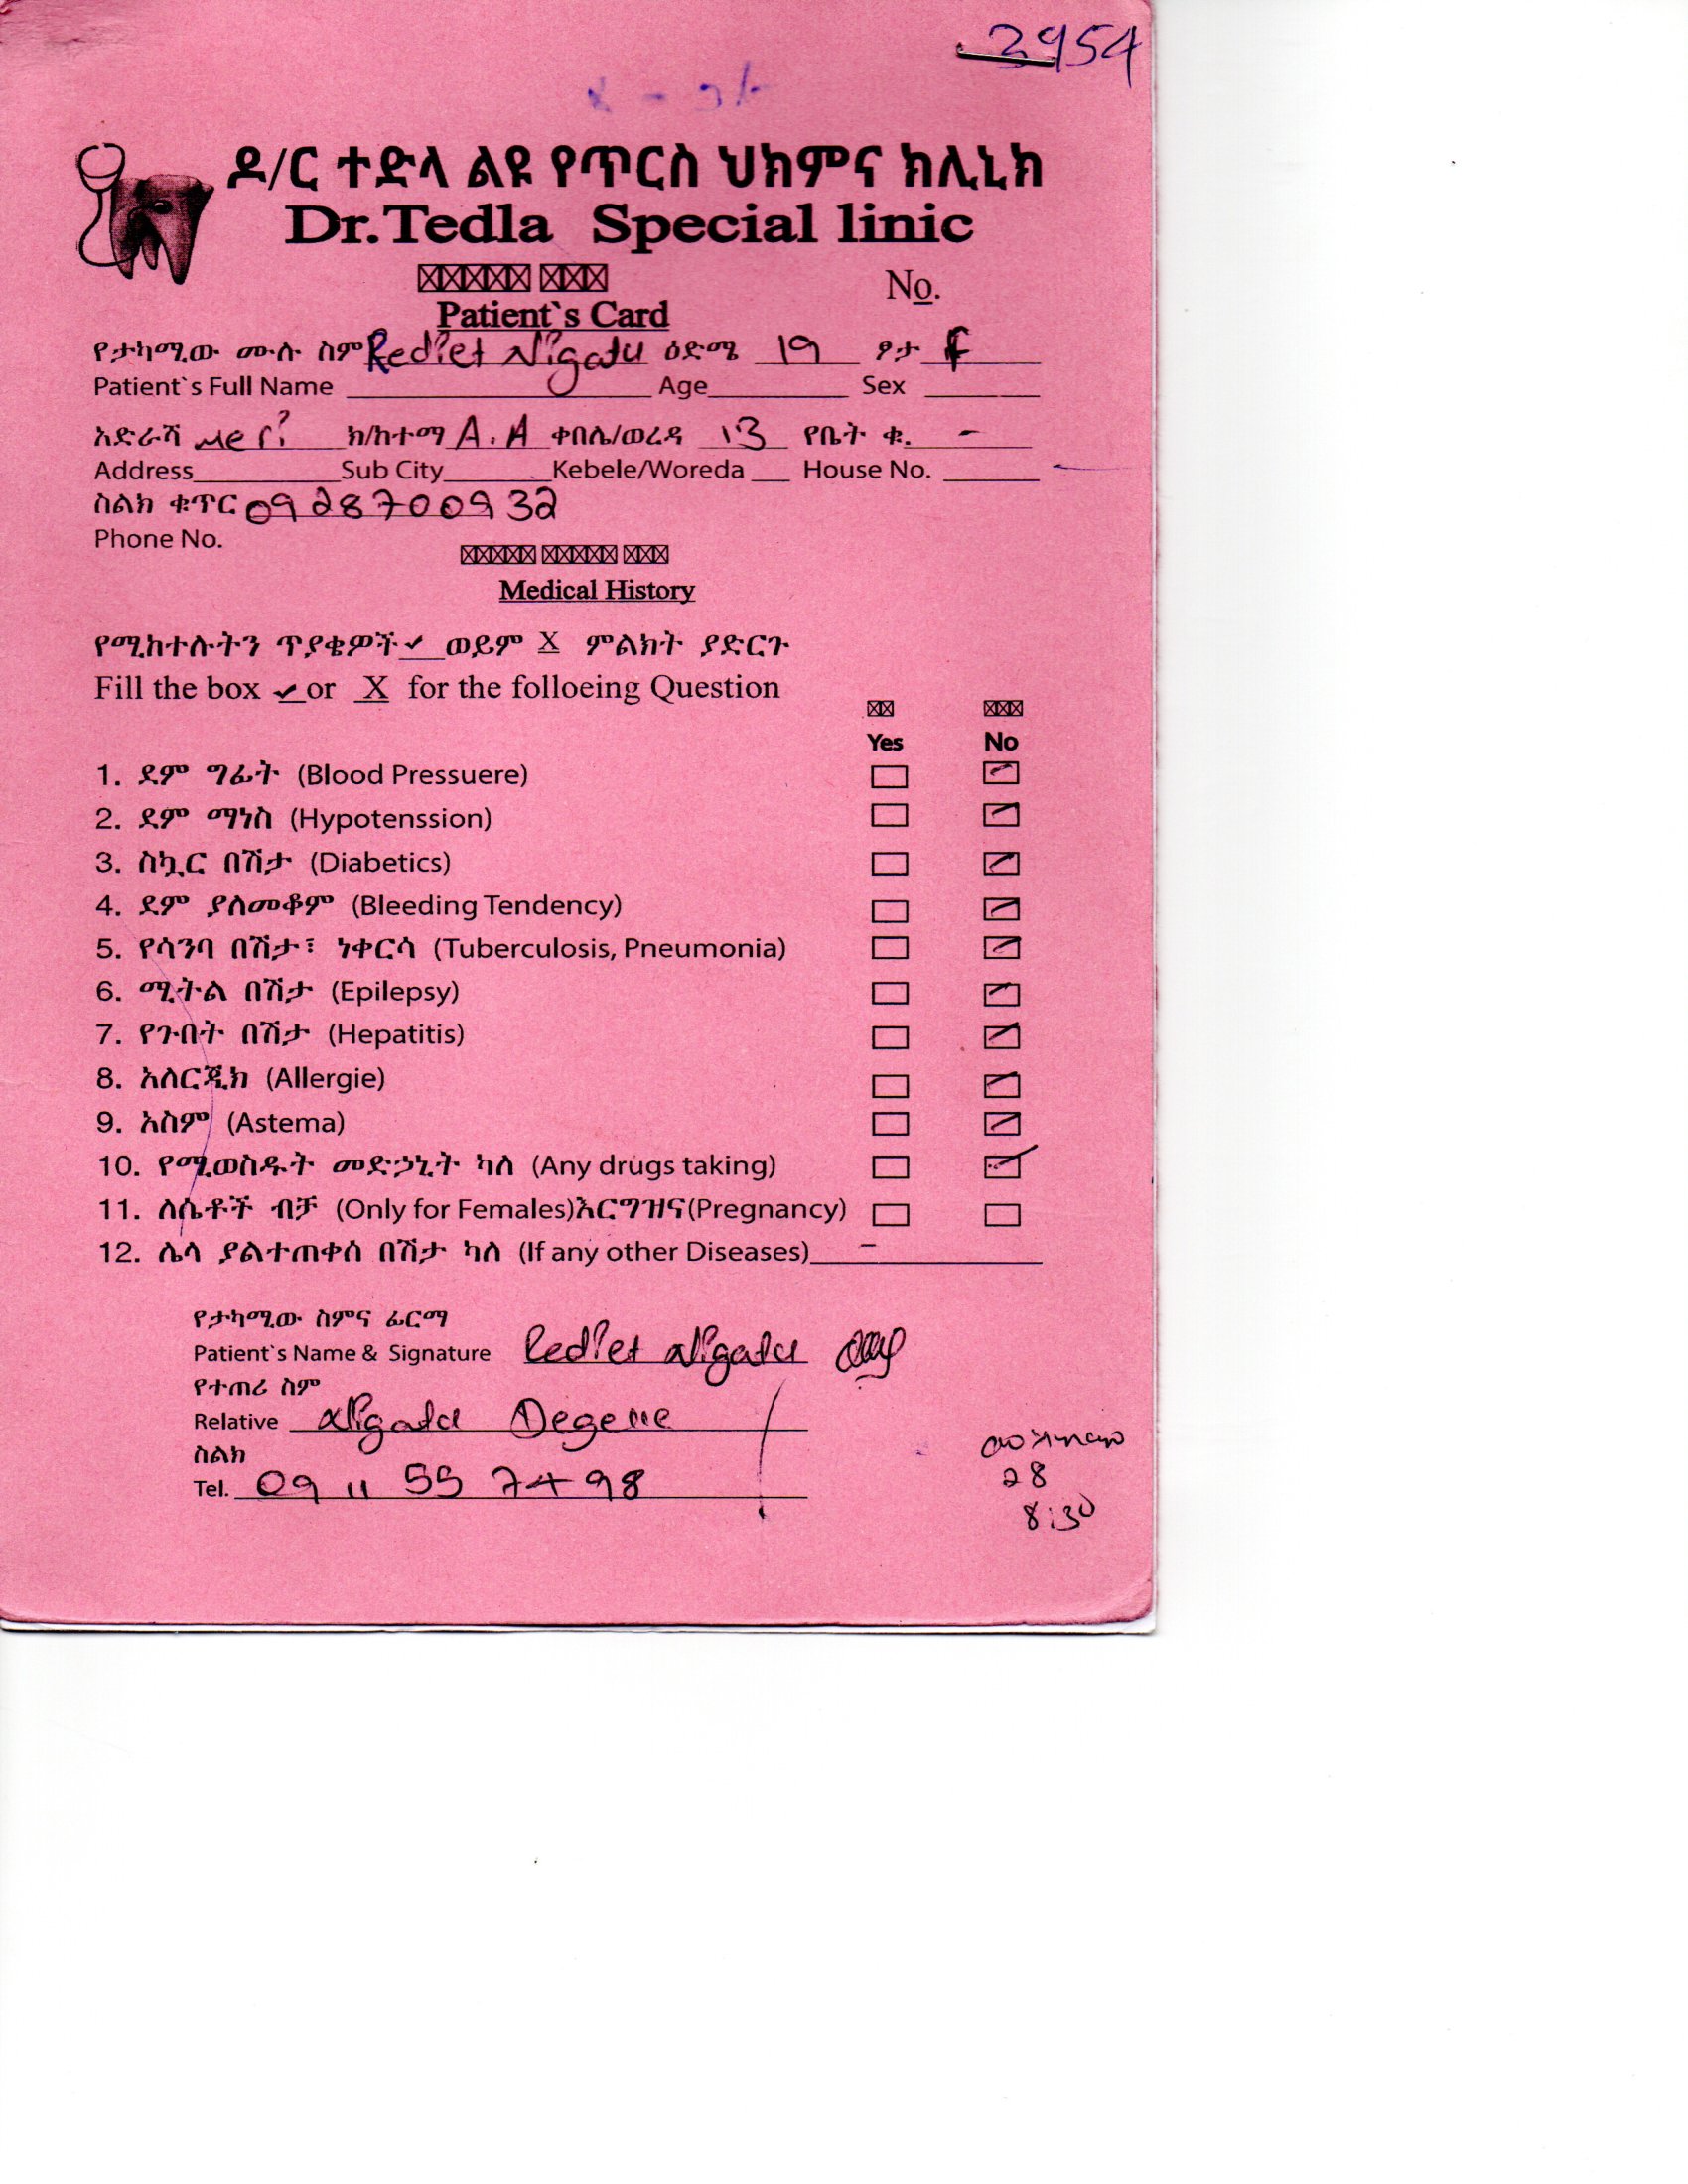 3954
ዶ/ር ተድላ ልዩ የጥርስ ህክምና ክሊኒክ
Dr.Tedla Special linic
No.
Patient`s Card
የታካሚው ሙሉ ስም Rediet Nigatu ዕድሜ 19 ፆታ F
Patient`s Full Name Age Sex
አድራሻ meri ክ/ከተማ A.A ቀበሌ/ወረዳ 13 የቤት ቁ. -
Address Sub City Kebele/Woreda House No.
ስልክ ቁጥር 0928700932
Phone No.
Medical History
የሚከተሉትን ጥያቄዎች ✓ ወይም X ምልክት ያድርጉ
Fill the box ✓ or X for the folloeing Question
Yes No
1. ደም ግፊት (Blood Pressuere)
2. ደም ማነስ (Hypotenssion)
3. ስኳር በሽታ (Diabetics)
4. ደም ያለመቆም (Bleeding Tendency)
5. የሳንባ በሽታ፣ ነቀርሳ (Tuberculosis, Pneumonia)
6. ሚትል በሽታ (Epilepsy)
7. የጉበት በሽታ (Hepatitis)
8. አለርጂክ (Allergie)
9. አስም (Astema)
10. የሚወስዱት መድኃኒት ካለ (Any drugs taking)
11. ለሴቶች ብቻ (Only for Females)እርግዝና(Pregnancy)
12. ሌላ ያልተጠቀሰ በሽታ ካለ (If any other Diseases) -
የታካሚው ስምና ፊርማ
Patient`s Name & Signature Rediet Nigatu
የተጠሪ ስም
Relative Nigatu Degene
ስልክ
Tel. 09 11 55 74 98
28
8:30